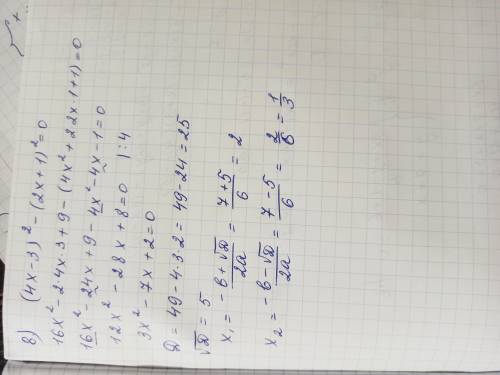 8) (4x-3)² - (2x+1)² = 0
16x² - 2·4x·3 + 9 - (4x² + 2·2x·1 + 1) = 0
16x² - 24x + 9 - 4x² - 4x - 1 = 0
12x² - 28x + 8 = 0 |:4
3x² - 7x + 2 = 0
D = 49 - 4·3·2 = 49 - 24 = 25
√D = 5
x₁ = -b+√D / 2a = 7+5 / 6 = 2
x₂ = -b-√D / 2a = 7-5 / 6 = 2/6 = 1/3